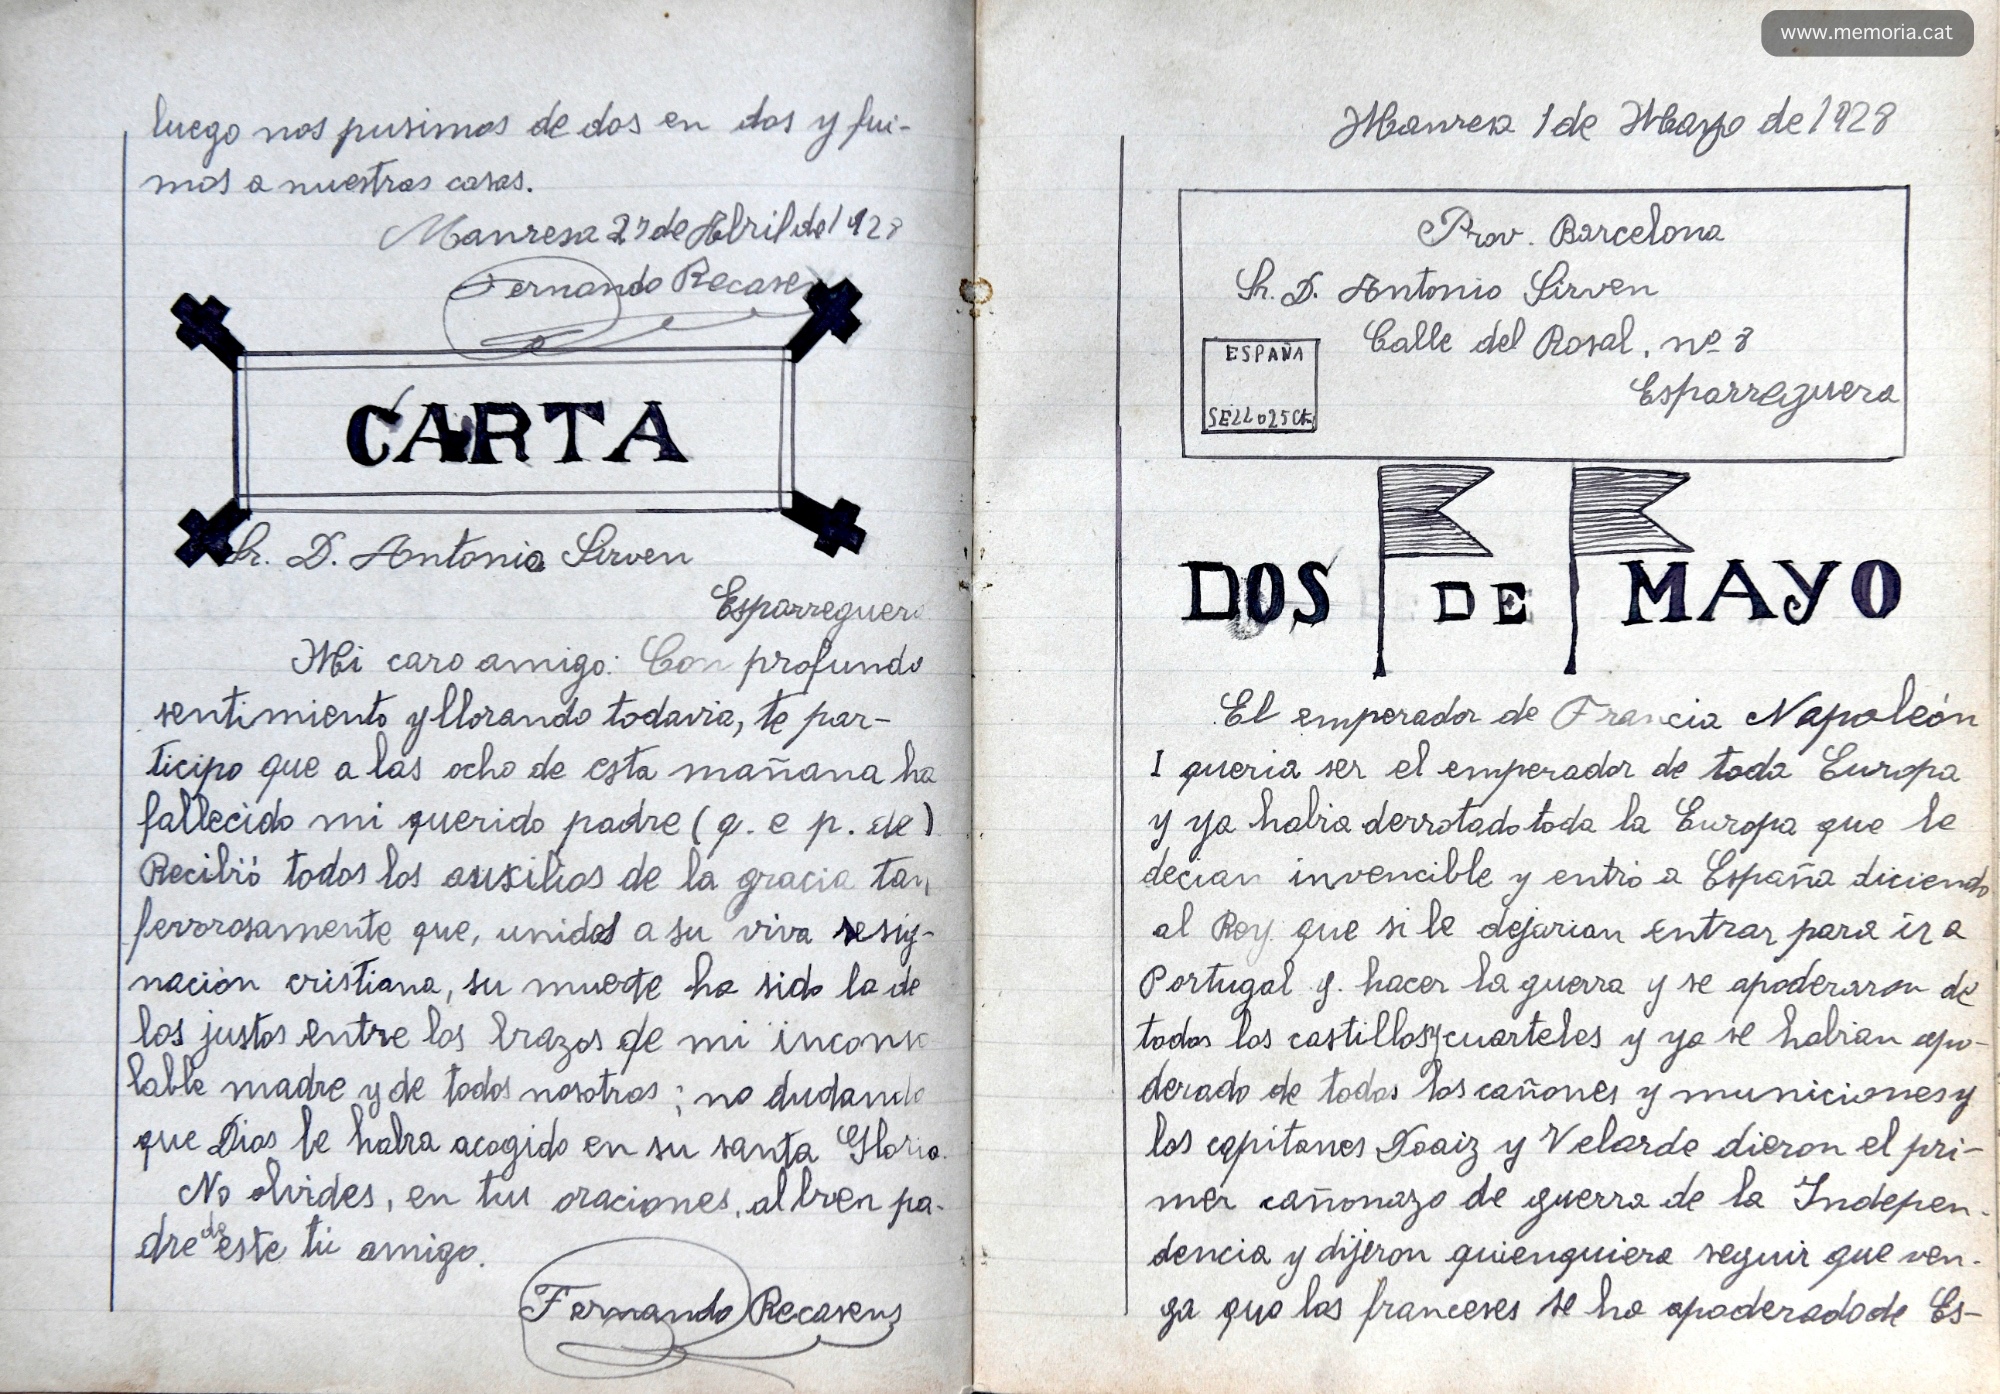 luego nos pusimos de dos en dos y fui-
mos a nuestras casas.
Manresa 27 de Abril de 1928
Fernando Recasens
CARTA
Sr. D. Antonio Sirven
Esparreguera
Mi caro amigo: Con profundo
sentimiento y llorando todavia, te par-
ticipo que a las ocho de esta mañana ha
fallecido mi querido padre (q. e p. de)
Recibió todos los auxilios de la gracia tan
fervorosamente que, unidos a su viva resig-
nación cristiana, su muerte ha sido la de
los justos entre los brazos de mi inconso
lable madre y de todos nosotros; no dudando
que Dios le habra acogido en su santa Gloria.
No olvides, en tus oraciones, al bren pa-
dre de este tú amigo.
Fernando Recasens
www.memoria.cat
Manresa 1 de Mayo de 1928
Prov. Barcelona
Sr. D. Antonio Sirven
Calle del Rosal, nº 8
Esparreguera
ESPAÑA
SELLO 25 Cts
DOS DE MAYO
El emperador de Francia Napoleón
I queria ser el emperador de toda Europa
y ya habia derrotado toda la Europa que le
decian invencible y entró a España diciendo
al Rey que si le dejarian entrar para ir a
Portugal y. hacer la guerra y se apoderaron de
todos los castillos y cuarteles y ya se habian apo-
derado de todos los cañones y municiones y
los capitanes Doaiz y Velarde dieron el pri-
mer cañonazo de guerra de la Indepen-
dencia y dijeron quienquiera seguir que ven-
ga que los franceses se ha apoderado de Es-